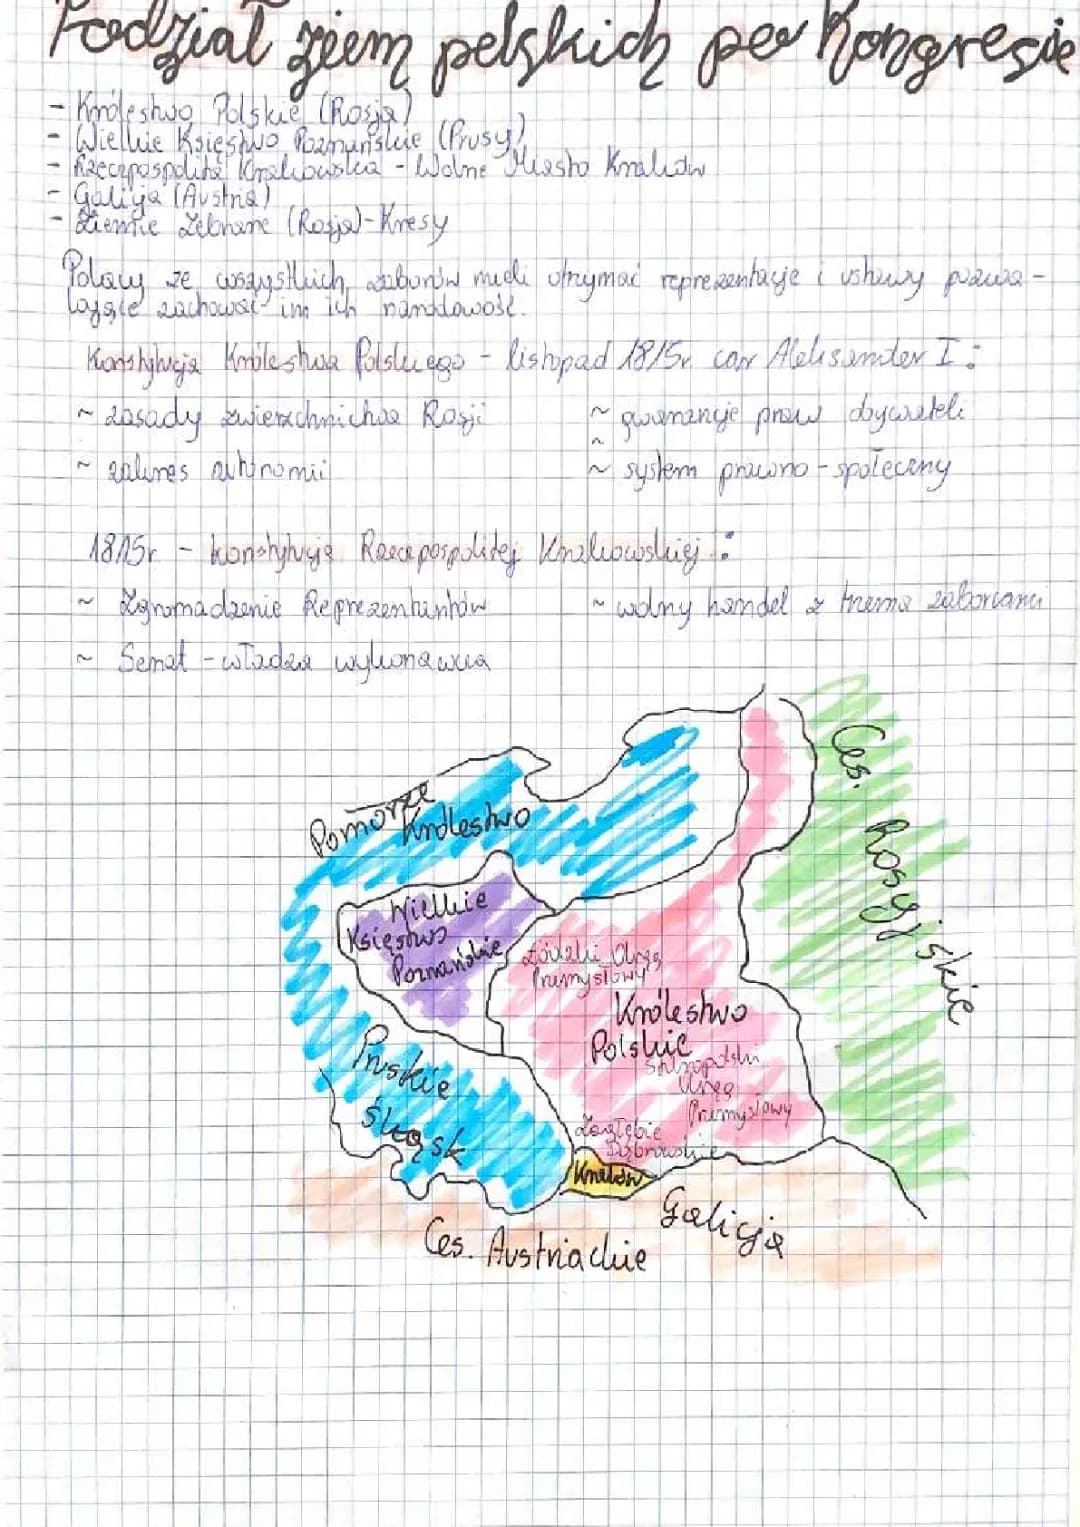 Podział ziem polskich po Kongresie
- Królestwo Polskie (Rosja)
- Wielkie Księstwo Poznańskie (Prusy)
- Rzeczpospolita Krakowska - Wolne Miasto Kraków
- Galicja (Austria)
- Ziemie Zebrane (Rosja) - Kresy
Polacy ze wszystkich zaborów mieli otrzymać reprezentacje i ustawy pozwa-
lające zachować im ich narodowość.
Konstytucja Królestwa Polskiego - listopad 1815r. car Aleksander I:
~ zasady zwierzchnictwa Rosji
~ gwarancje praw obywateli
~
~ zakres autonomii
~ system prawno-społeczny
1815r - konstytucja Rzeczpospolitej Krakowskiej:
~ Zgromadzenie Reprezentantów
~ wolny handel z trzema zaborcami
~ Senat - władza wykonawcza
Ces. Rosyjskie
Pomorze
Królestwo
Wielkie
Księstwo
Poznańskie
Łódzki Okręg
Przemysłowy
Królestwo
Polskie
Staropolski
Okręg
Przemysłowy
Pruskie
Śląsk
Zagłębie
Dąbrowskie
Kraków
Galicja
Ces. Austriackie